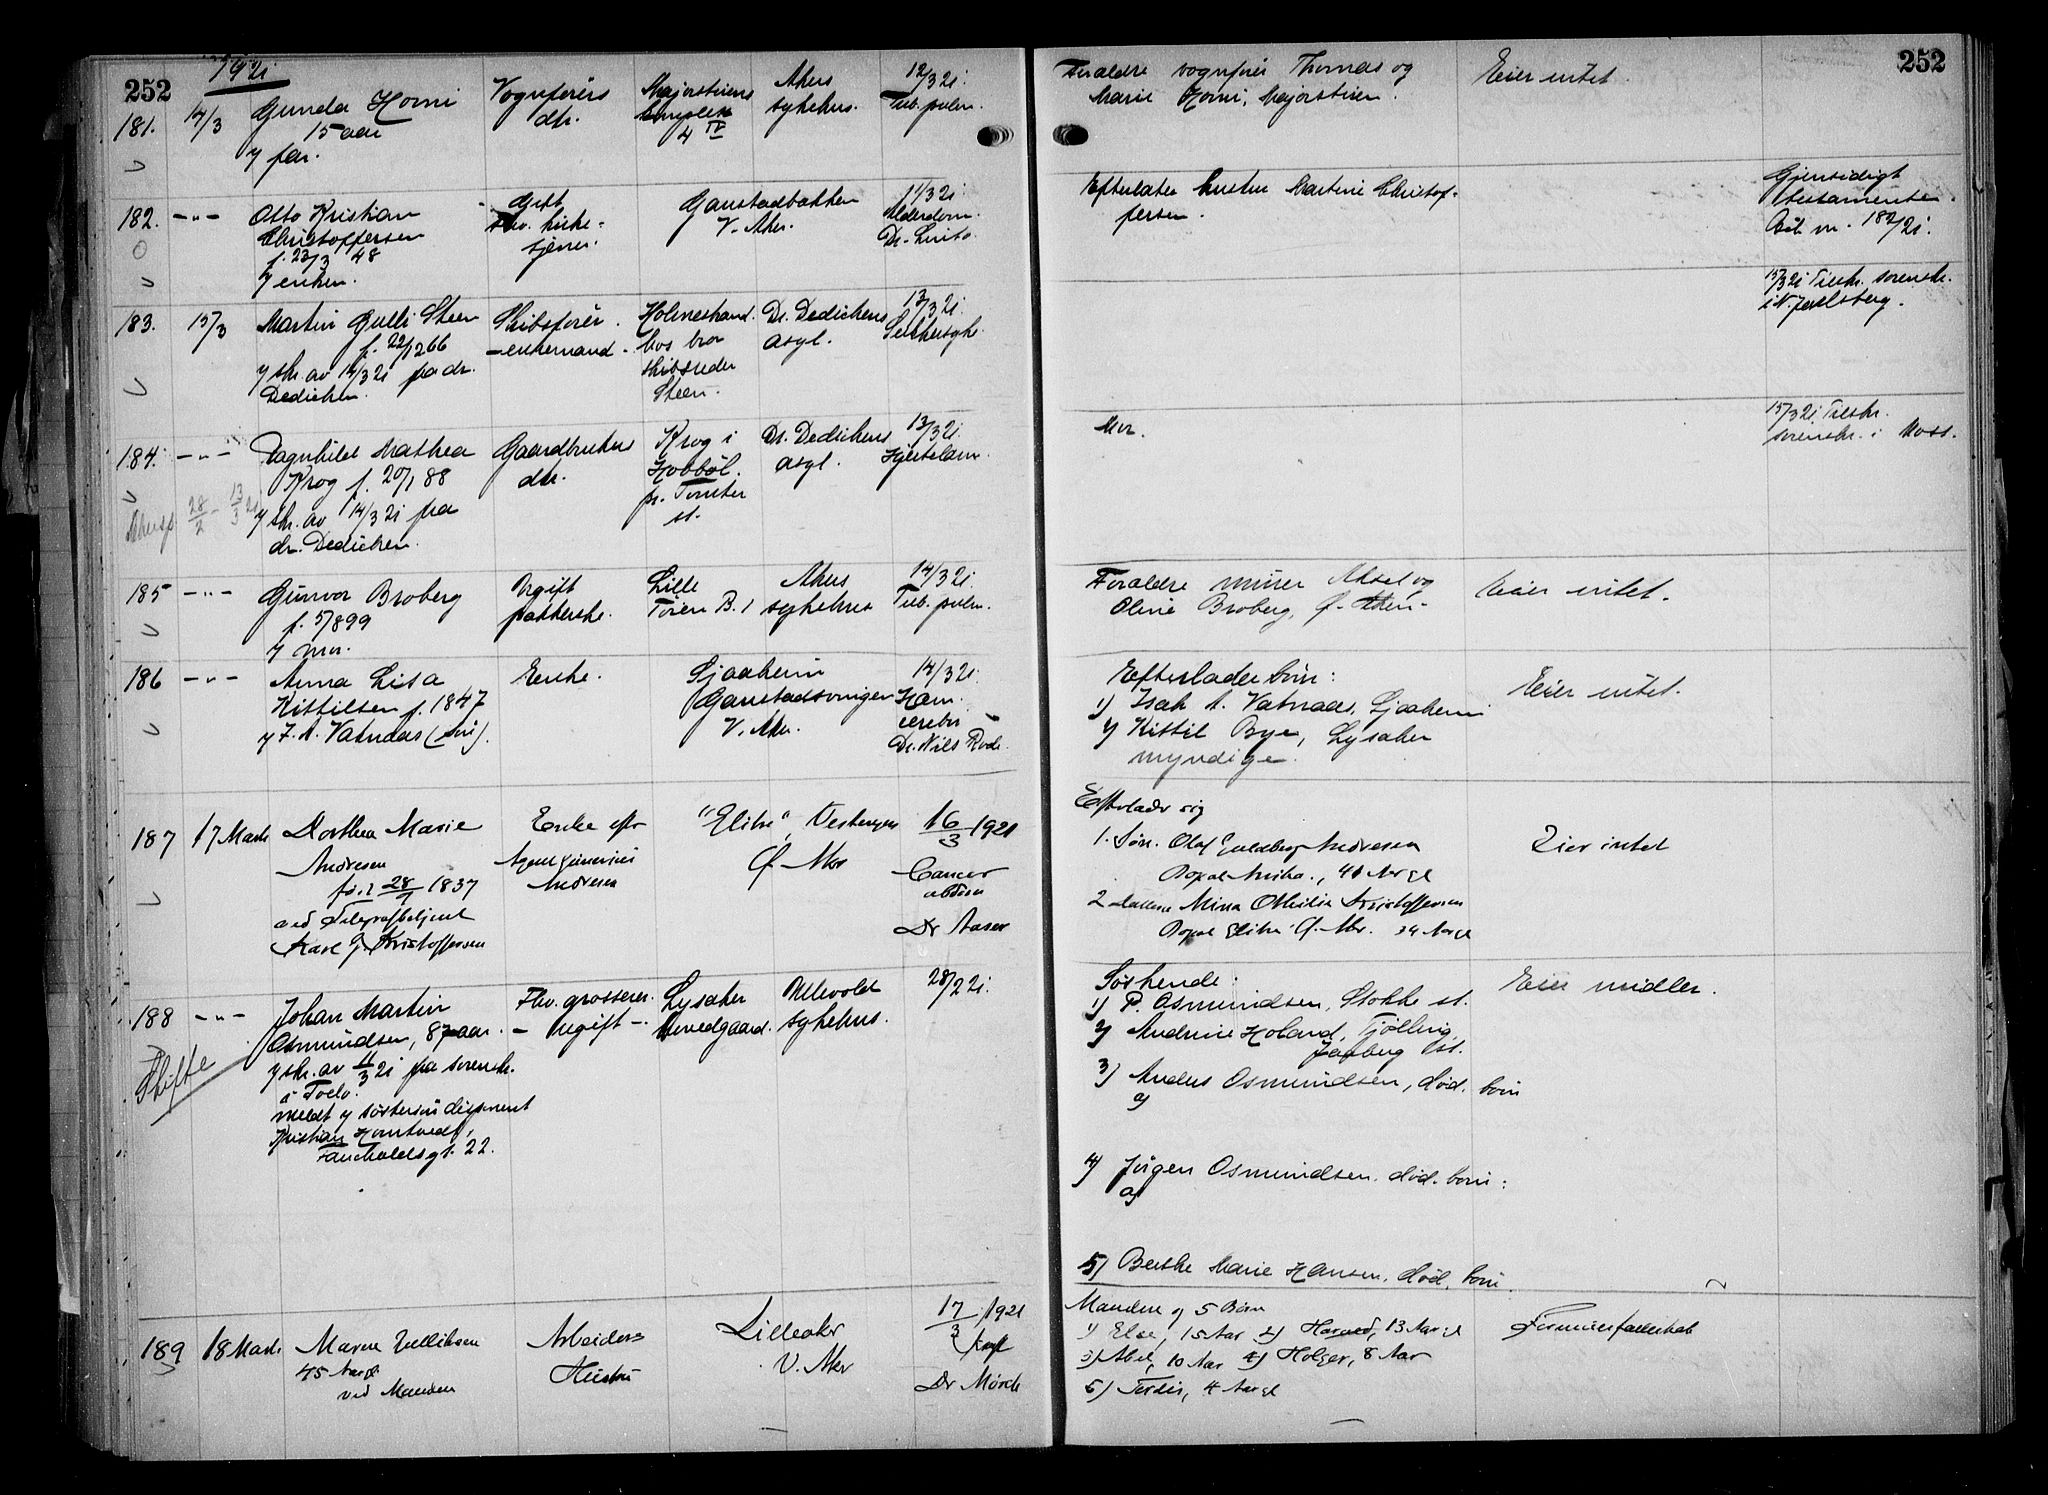 252
1921
252
181.
14/3
Gunda Horni
15 aar
v/ far.
Vognførers
dtr.
Majorstuens
4 IV
Akers
sykehus.
12/3 21.
Tub. pulm.
Forældre vognfører Thomas og
Marie Horni, Majorstuen.
Eier intet.
182.
— " —
Otto Kristian
Christoffersen
f. 23/3 48
v/ enken.
Gift
Fhv. kirke-
tjener.
Gaustadbakken
V. Aker.
11/3 21.
Alderdom.
Efterlater hustru Martine Christof-
fersen.
Gjensidigt
testamente.
182/21.
183.
15/3
Martin Gulli Steen
f. 22/12 66
v/ skr. av 14/3 21 fra dr.
Dedichen.
Skibsfører.
- enkemand -
Holmestrand.
hos bror
skibsreder
Steen.
Dr. Dedichens
asyl.
13/3 21.
15/3 21 Tilskr. sorenskr.
i N. Jarlsberg.
184.
— " —
Ragnhild Mathea
Krog f. 20/1 88
v/ skr. av 14/3 21 fra
dr. Dedichen.
28/2 - 13/3 21
Gaardbrukers
dtr.
Krog i
Hobbøl.
pr. Tomter
st.
Dr. Dedichens
asyl.
13/3 21.
Hjertelam.
Mor.
15/3 21 Tilskr.
sorenskr. i Moss.
185
— " —
Gunvor Broberg
f. 5/8 99
v/ mor.
Ugift
pakkerske.
Lille
Tøien B. 1
Akers
sykehus
14/3 21.
Tub. pulm.
Forældre murer Aksel og
Oline Broberg, Ø. Aker.
Eier intet.
186
— " —
Anna Lisa
Kittilsen f. 1847
v/ I. A. Vatnaas (søn).
Enke.
Sjaaheim
Gaustadsvingen
V. Aker.
14/3 21.
Hæm.
cerebri -
Dr. Nils Rode.
Efterlader børn:
1) Isak A. Vatnaas, Sjaaheim
2) Kittil Bye, Lysaker
myndige.
Eier intet.
187
17 Marts
Dorthea Marie
Andresen
født 28/7 1837
ved Telegrafbetjent
Karl G. Kristoffersen
Enke efter
Agent
Andresen
"Elitre", Vestengen
Ø. Aker
16/3 1921
Cancer
abdom
Dr Aaser
Efterlader sig
1. Søn. Olaf Guldberg Andresen
2 datter Mina Othilie Kristoffersen
Eier intet
188
— " —
Skifte
Johan Martin
Osmundsen, 87 aar.
v/ skr. av 11/3 21 fra sorenskr.
i Toelv.
meldt v/ søstersøn disponent
Kristian Homtvedt,
Fauchaldsgt. 22.
Fhv. grosserer.
- ugift -
Lysaker
hovedgaard.
Ullevold
sykehus.
28/2 21.
Søskende:
1) P. Osmundsen, Stokke st.
2) Andrine Holand, Tjølling,
Jaaberg st.
3) Anders Osmundsen, død. børn
a)
4) Jørgen Osmundsen, død. børn:
a)
5) Berthe Marie Hansen, død, børn
Eier midler.
189
18 Marts
Maren Zulliksen
45 Aar gl
ved Manden
Arbeider=
Hustru
Lilleaker
V. Aker
17/3 1921
Dr Mørck
Manden og 5 Børn
1) Else, 15 Aar 2) Harald, 13 Aar gl
3) Abel, 10 Aar 4) Holger, 8 Aar
5) Terdis, 4 Aar gl
Formuesfælleskab